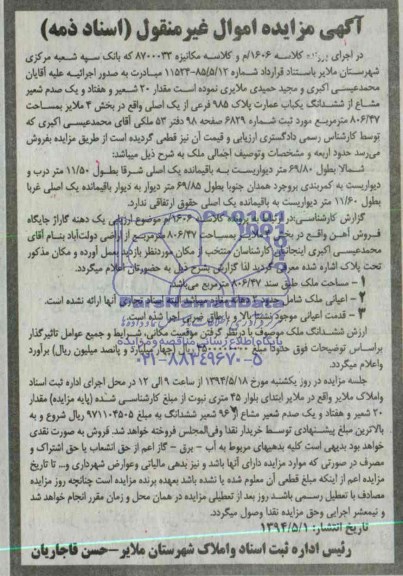 آگهی مزایده اموال غیرمنقول (اسناد ذمه)
در اجرای پرونده کلاسه ۱۶۰۶/م و کلاسه مکانیزه ۸۷۰۰۰۳۳ که بانک سپه شعبه مرکزی
شهرستان ملایر باستناد قرارداد شماره ۱۱۵۲۴-۸۵/۵/۱۲ مبادرت به صدور اجرائیه علیه آقایان
محمدعیسی اکبری و مجید حمیدی ملایری نموده است مقدار ۲۰ شعیر و هفتاد و یک صدم شعیر
مشاع از ششدانگ یکباب عمارت پلاک ۹۸۵ فرعی از یک اصلی واقع در بخش ۴ ملایر بمساحت
۸۰۶/۴۷ مترمربع مورد ثبت شماره ۶۸۲۹ صفحه ۹۸ دفتر ۵۳ ملکی آقای محمدعیسی اکبری که
توسط کارشناس رسمی دادگستری ارزیابی و قیمت آن نیز قطعی گردیده است از طریق مزایده بفروش
می‌رسد حدود اربعه و مشخصات وتوصیف اجمالی ملک به شرح ذیل میباشد:
شمالا بطول ۶۹/۸۰ متر دیواریست به باقیمانده یک اصلی شرقا بطول ۱۱/۵۰ متر درب و
دیواریست به کمربندی بروجرد همدان جنوبا بطول ۶۹/۸۵ متر دیوار به دیوار باقیمانده یک اصلی غربا
بطول ۱۱/۶۰ متر دیواریست به باقیمانده یک اصلی حقوق ارتفاقی ندارد.
گزارش کارشناسی: در رابطه با پرونده کلاسه ۱۶۰۶/م موضوع ارزیابی یک دهنه گاراژ جایگاه
فروش آهن واقع در بخش ۴ ملایر بمساحت ۸۰۶/۴۷ مترمربع از اراضی دولت‌آباد بنام آقای
محمدعیسی اکبری اینجانبان کارشناسان منتخب از مکان موردنظر بازدید بعمل آورده و مکان مذکور
تحت پلاک اشاره شده معرفی گردید لذا گزارش بشرح ذیل به حضورتان اعلام میگردد.
۱ - مساحت ملک طبق سند ۸۰۶/۴۷ مترمربع می‌باشد.
۲ - اعیانی ملک شامل
۳ - قدمت اعیانی موجود نسبتا بالا و
ارزش ششدانگ ملک موصوف با درنظر گرفتن موقعیت مکانی، شرایط و جمیع عوامل تاثیرگذار
براساس توضیحات فوق حدودا مبلغ ۴۵۰۰۰۰۰۰۰۰ ریال (چهار میلیارد و پانصد میلیون ریال) برآورد
واعلام میگردد.
جلسه مزایده در روز یکشنبه مورخ ۱۳۹۴/۵/۱۸ از ساعت ۹ الی ۱۲ در محل اجرای اداره ثبت اسناد
واملاک ملایر واقع در ملایر ابتدای بلوار ۴۵ متری نبوت از مبلغ کارشناسی شده (پایه مزایده) مقدار
۲۰ شعیر و هفتاد و یک صدم شعیر مشاع از ۹۶ شعیر ششدانگ به مبلغ ۹۷۱۱۰۴۵۰۵ ریال شروع و به
بالاترین مبلغ پیشنهادی توسط خریدار نقدا وفی‌المجلس فروخته خواهد شد. فروش به صورت نقدی
خواهد بود بدیهی است کلیه بدهیهای مربوط به آب - برق - گاز اعم از حق انشعاب یا حق اشتراک و
مصرف در صورتی که موارد مزایده دارای آنها باشد و نیز بدهی مالیاتی وعوارض شهرداری و... تا تاریخ
مزایده اعم از اینکه مبلغ قطعی آن معلوم شده یا نشده باشد بعهده برنده مزایده است چنانچه روز مزایده
مصادف با تعطیل رسمی باشد روز بعد از تعطیلی مزایده در همان محل و زمان مقرر انجام خواهد شد
و نیمعشر اجرایی وحق مزایده نقدا وصول میگردد.
تاریخ انتشار: ۱۳۹۴/۵/۱
رئیس اداره ثبت اسناد واملاک شهرستان ملایر-حسن قاجاریان
پایگاه اطلاع رسانی مناقصه و مزایده
۰۲۱-۸۸۳۴۹۶۷۰-۵